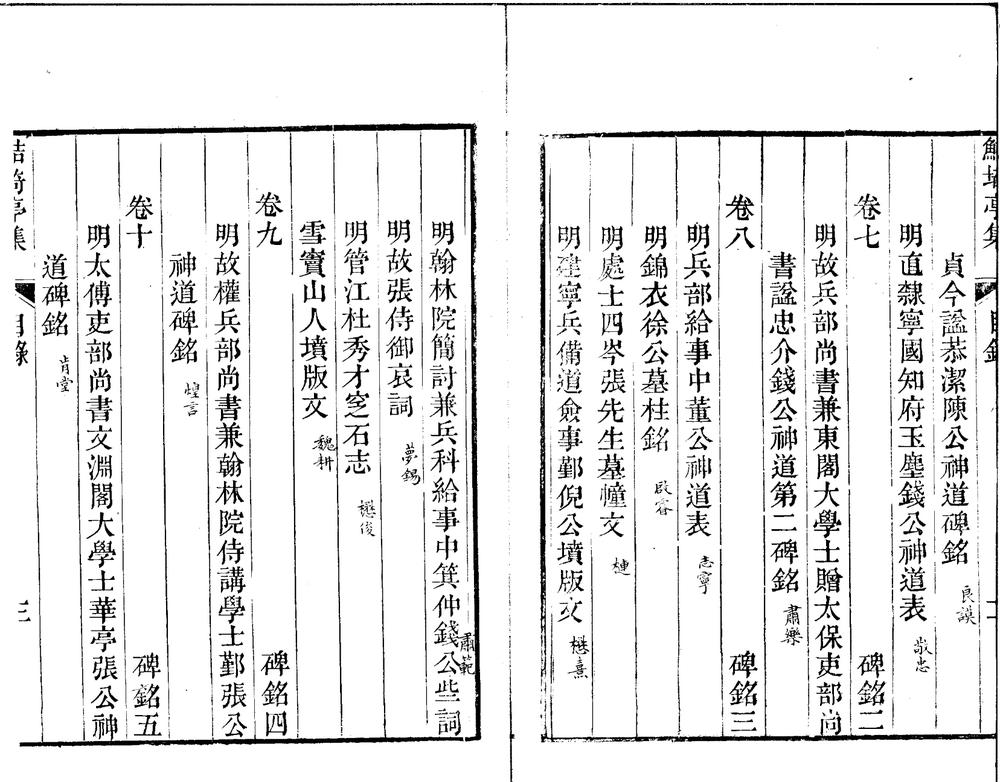 鮚埼亭集 目錄
貞今謚恭潔陳公神道碑銘 良謨
明直隸寧國知府玉塵錢公神道表 敬忠
卷七 碑銘二
明故兵部尚書兼東閣大學士贈太保吏部尚
書謚忠介錢公神道第二碑銘 肅樂
卷八 碑銘三
明兵部給事中董公神道表 志寧
明錦衣徐公墓柱銘 啟睿
明處士四岑張先生墓幢文 梿
明建寧兵備道僉事鄞倪公墳版文 懋熹
明翰林院簡討兼兵科給事中箕仲錢公些詞 肅範
明故張侍御哀詞 夢錫
明管江杜秀才窆石志 懋俊
雪竇山人墳版文 魏耕
卷九 碑銘四
明故權兵部尚書兼翰林院侍講學士鄞張公
神道碑銘 煌言
卷十 碑銘五
明太傅吏部尚書文淵閣大學士華亭張公神
道碑銘 肯堂
鮚埼亭集 目錄 三